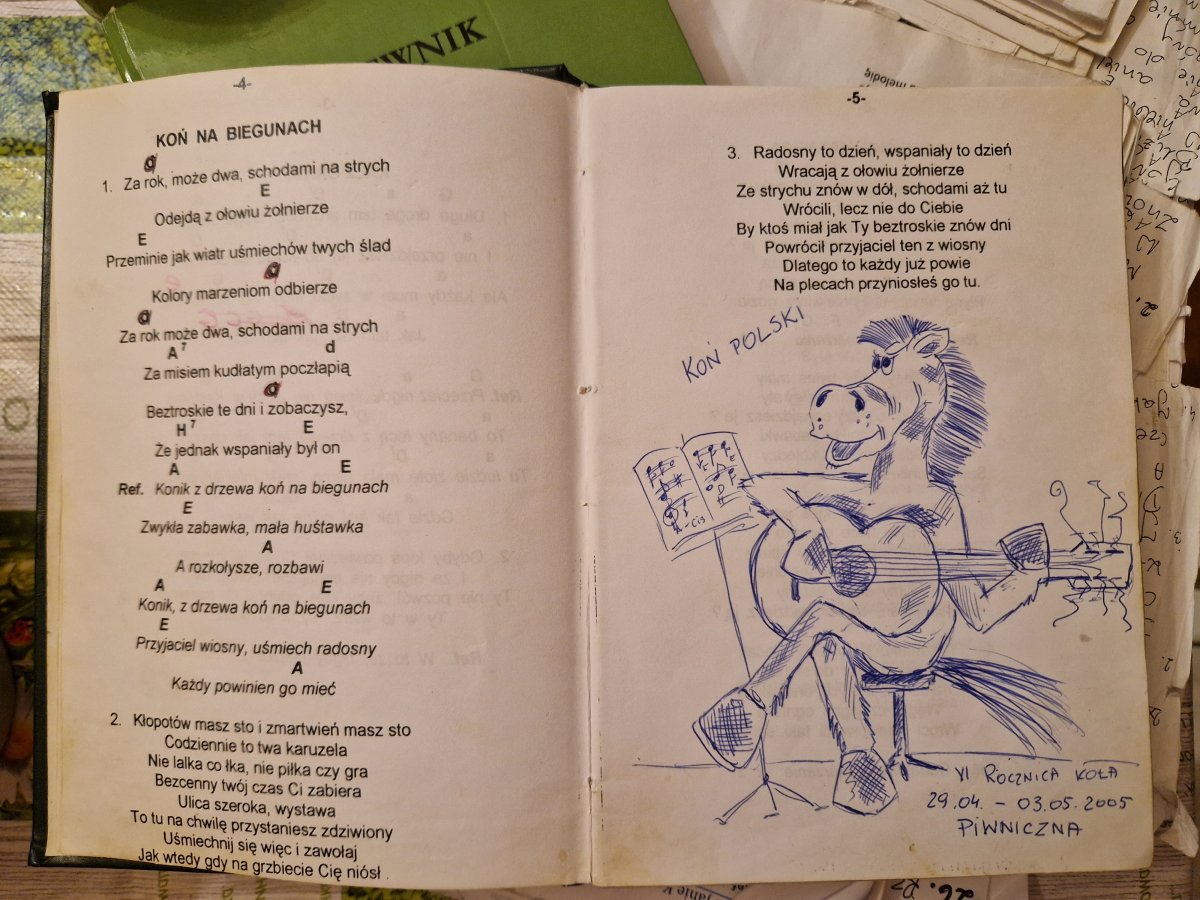 WNIK
melodię
-4-
KOŃ NA BIEGUNACH
a
1. Za rok, może dwa, schodami na strych
E
Odejdą z ołowiu żołnierze
E
Przeminie jak wiatr uśmiechów twych ślad
a
Kolory marzeniom odbierze
a
Za rok może dwa, schodami na strych
A7 d
Za misiem kudłatym poczłapią
a
Beztroskie te dni i zobaczysz,
H7 E
Że jednak wspaniały był on
A E
Ref. Konik z drzewa koń na biegunach
E
Zwykła zabawka, mała huśtawka
A
A rozkołysze, rozbawi
A E
Konik, z drzewa koń na biegunach
E
Przyjaciel wiosny, uśmiech radosny
A
Każdy powinien go mieć
2. Kłopotów masz sto i zmartwień masz sto
Codziennie to twa karuzela
Nie lalka co łka, nie piłka czy gra
Bezcenny twój czas Ci zabiera
Ulica szeroka, wystawa
To tu na chwilę przystaniesz zdziwiony
Uśmiechnij się więc i zawołaj
Jak wtedy gdy na grzbiecie Cię niósł.
-5-
3. Radosny to dzień, wspaniały to dzień
Wracają z ołowiu żołnierze
Ze strychu znów w dół, schodami aż tu
Wrócili, lecz nie do Ciebie
By ktoś miał jak Ty beztroskie znów dni
Powrócił przyjaciel ten z wiosny
Dlatego to każdy już powie
Na plecach przyniosłeś go tu.
KOŃ POLSKI
Cis
VI ROCZNICA KOŁA
29.04. - 03.05.2005
PIWNICZNA